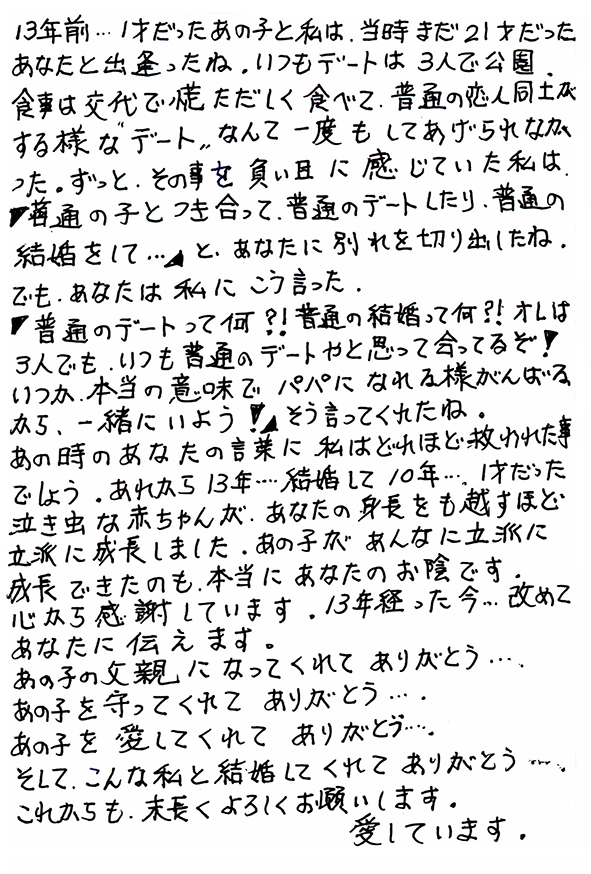 13年前…1才だったあの子と私は、当時まだ21才だった
あなたと出逢ったね。いつもデートは3人で公園。
食事は交代で慌ただしく食べて、普通の恋人同士が
する様な〝デート〟なんて一度もしてあげられなか
った。ずっと、その事を負い目に感じていた私は、
『普通の子とつき合って、普通のデートしたり、普通の
結婚をして…』と、あなたに別れを切り出したね。
でも、あなたは私にこう言った。
『普通のデートって何?!普通の結婚って何?!オレは
3人でも、いつも普通のデートやと思って合ってるぞ!
いつか、本当の意味でパパになれる様がんばる
から、一緒にいよう!』そう言ってくれたね。
あの時のあなたの言葉に私はどれほど救われた事
でしょう。あれから13年…結婚して10年…、1才だった
泣き虫な赤ちゃんが、あなたの身長をも越すほど
立派に成長しました。あの子があんなに立派に
成長できたのも、本当にあなたのお陰です。
心から感謝しています。13年経った今…改めて
あなたに伝えます。
あの子の父親になってくれてありがとう…。
あの子を守ってくれてありがとう…。
あの子を愛してくれてありがとう…。
そして、こんな私と結婚してくれてありがとう…。
これからも、末長くよろしくお願いします。
愛しています。